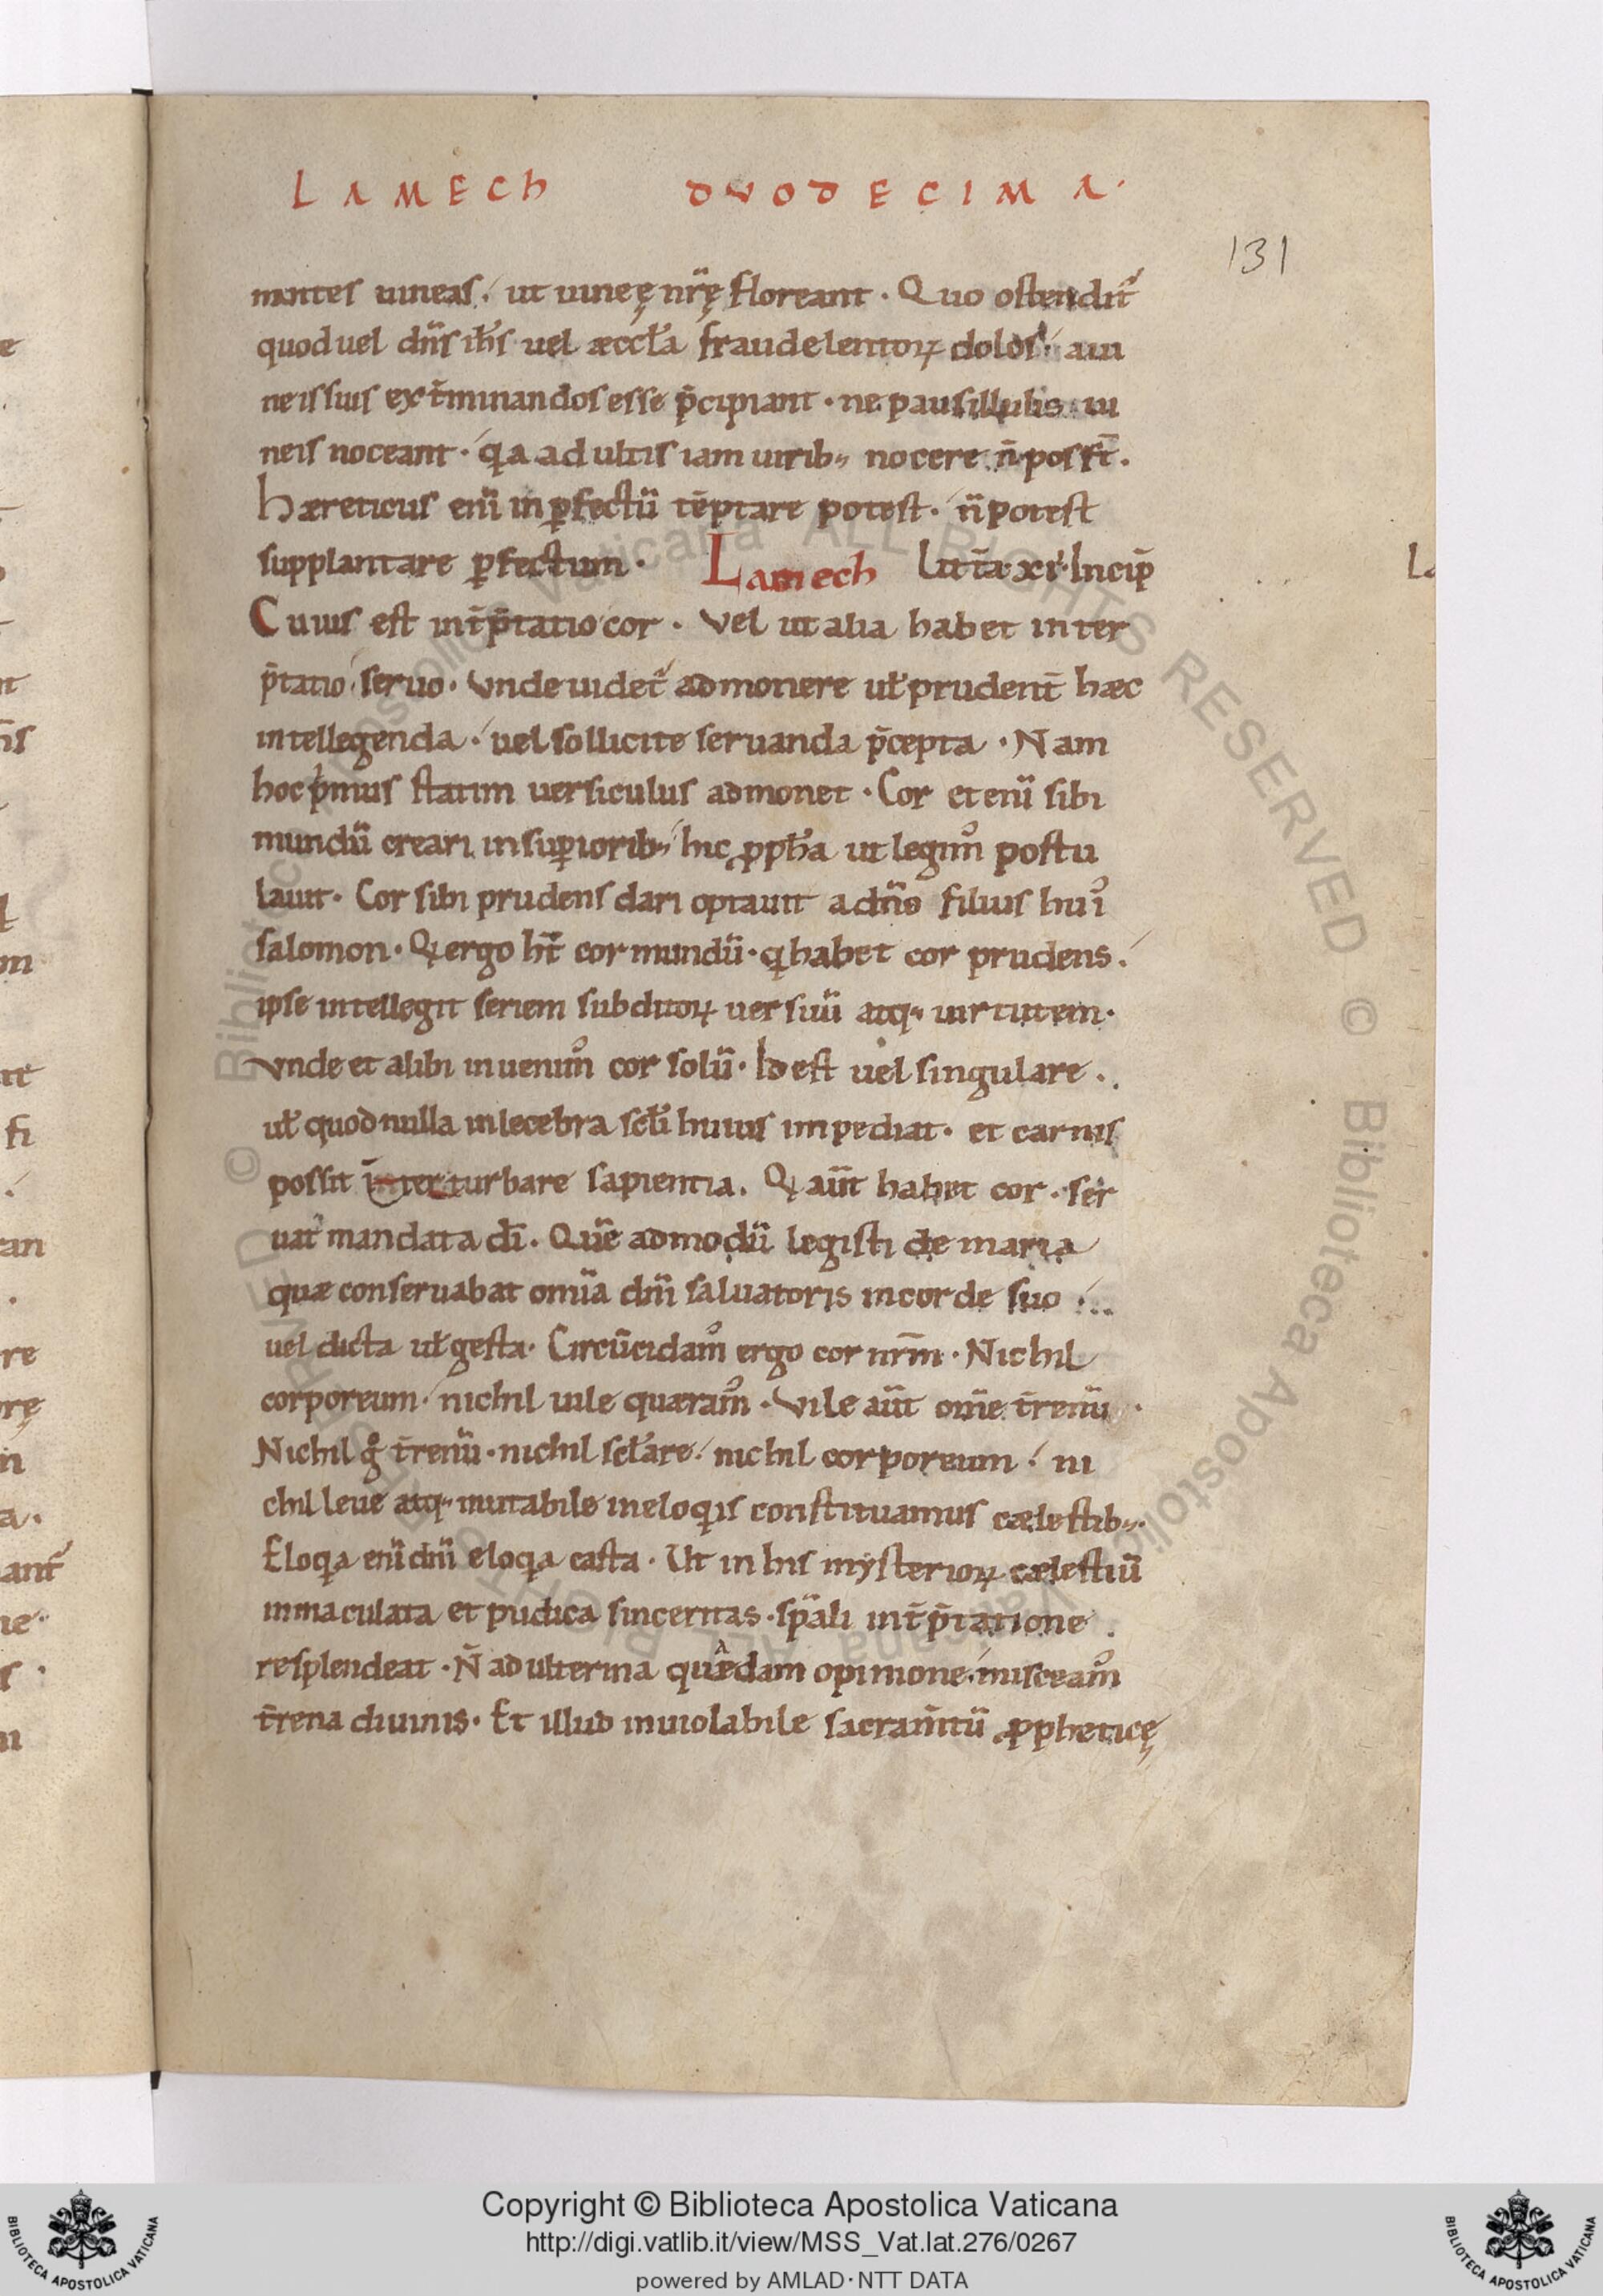 LAMECH DVODECIMA.
131
nantes uineas. ut uineę nr̄ę floreant. Quo ostendit᷒
quod uel dn̄s ih̄s uel æccl̄a fraudelentoꝝ dolos. a ui
neis suis ext̄minandos esse p̄cipiant. ne pausillulis ui
neis noceant. qa adultis iam uirib; nocere n̄ posst̄.
Hæreticus eni̅ inꝑfectu̅ te̅ptare potest. n̄ potest
supplantare ꝑfectum. Lamech Litt̄a xi. Incip̄
Cuius est int̄p̄tatio cor. Vel ut alia habet inter
p̄tatio. seruo. Vnde uidet᷒ admonere ut̄ prudent̄ hæc
intellegenda. uel sollicite seruanda p̄cepta. Nam
hoc p̍mus statim uersiculus admonet. Cor etenī sibi
mundū creari in suꝑiorib; hic ꝓph̄a ut legimꝰ postu
lauit. Cor sibi prudens dari optauit a dn̄o filius huiꝰ
salomon. Qͥ ergo ht̄ cor mundū. qͥ habet cor prudens.
ipse intellegit seriem subditoꝝ uersuū atq; uirtutem.
Vnde et alibi inuenimꝰ cor solū. Id est uel singulare.
ut̄ quod nulla inlecebra scl̄i huius impediat. et carnis
possit interturbare sapientia. Qͥ aūt habet cor. ser
uat mandata dī. Quē admodū legisti de maria
quæ conseruabat om̄ia dn̄i saluatoris in corde suo
uel dicta ut̄ gesta. Circūcidamꝰ ergo cor nr̄m. Nichil
corporeum. nichil uile quæramꝰ. Vile aūt om̄e t̄renū.
Nichil gͦ t̄renū. nichil scl̄are. nichil corporeum. ni
chil leue atq; mutabile in eloqͥis constituamus cælestib;.
Eloqͥa enī dn̄i eloqͥa casta. Ut in his mysterioꝝ cælestiū
inmaculata et pudica sinceritas. sp̄ali int̄p̄tatione
resplendeat. N̄ adulterina quadam opinione. misceamꝰ
t̄rena diuinis. Et illud inuiolabile sacram̄tū ꝓpheticę
Copyright © Biblioteca Apostolica Vaticana
http://digi.vatlib.it/view/MSS_Vat.lat.276/0267
powered by AMLAD·NTT DATA
BIBLIOTECA APOSTOLICA VATICANA
BIBLIOTECA APOSTOLICA VATICANA